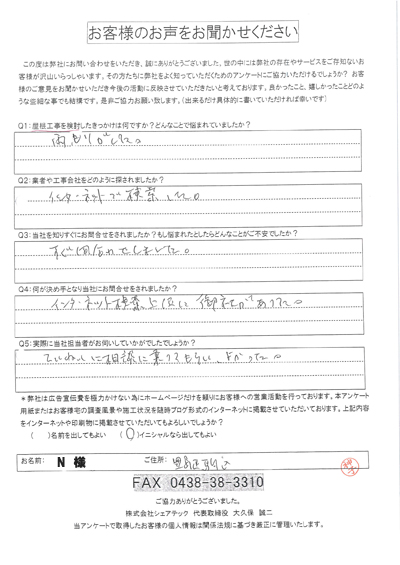 お客様のお声をお聞かせください
この度は弊社にお問い合わせをいただき、誠にありがとうございました。世の中には弊社の存在やサービスをご存知ないお
客様が沢山いらっしゃいます。その方たちに弊社をよく知っていただくためのアンケートにご協力いただけるでしょうか? お客
様のご意見をお聞かせいただき今後の活動に反映させていただきたいと考えております。良かったこと、嬉しかったことどのよ
うな些細な事でも結構です。是非ご協力お願い致します。(出来るだけ具体的に書いていただければ幸いです)
Q1:屋根工事を検討したきっかけは何ですか?どんなことで悩まれていましたか?
雨もりがした。
Q2:業者や工事会社をどのように探されましたか?
インターネットで検索した。
Q3:当社を知りすぐにお問合せをされましたか?もし悩まれたとしたらどんなことがご不安でしたか?
すぐ問合わせしました。
Q4:何が決め手となり当社にお問合せをされましたか?
インターネット検索上位に御社があった。
Q5:実際に当社担当者がお伺いしていかがでしたでしょうか?
ていねいに相談に乗ってもらい、よかった。
*弊社は広告宣伝費を極力かけない為にホームページだけを頼りにお客様への営業活動を行っております。本アンケート
用紙またはお客様宅の調査風景や施工状況を随時ブログ形式のインターネットに掲載させていただいております。上記内容
をインターネットや印刷物に掲載させていただいてもよろしいでしょうか?
( )名前を出してもよい (○)イニシャルなら出してもよい
お名前: N 様 ご住所: 豊島区駒込
FAX 0438-38-3310
ご協力ありがとうございました。
株式会社シェアテック 代表取締役 大久保 誠二
当アンケートで取得したお客様の個人情報は関係法規に基づき厳正に管理いたします。